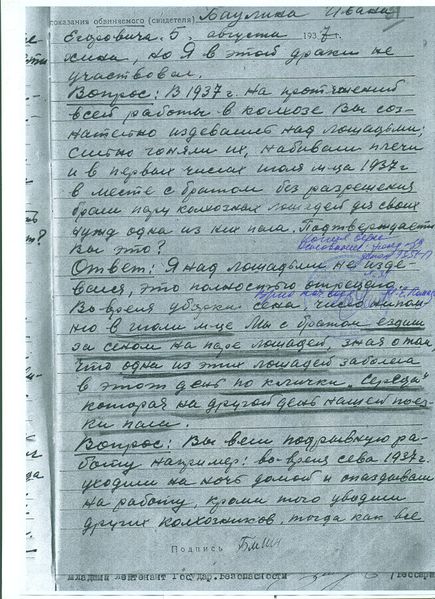 показания обвиняемого (свидетеля) Баулина Ивана
Егоровича. 5. августа 1937 г.
хина, но Я в этой драки не
участвовал.
Вопрос: В 1937 г. на протяжении
всей работы в колхозе Вы соз-
нательно издевались над лошадьми;
сильно гоняли их, набивали плечи
и в первых числах июля м-ца 1937 г
в месте с братом без разрешения
брали пару колхозных лошадей для своих
нужд одна из них пала. Подтверждаете
Вы это?
Ответ: Я над лошадьми не изде-
вался, это полностью отрецаю.
Во время уборки сена, число непом-
ню в июли м-це Мы с братом ездили
за сеном на паре лошадей, зная о том,
что одна из этих лошадей заболела
в этот день по клички „Середа"
которая на другой день нашей поез-
ки пала.
Вопрос: Вы вели подрывную ра-
боту например: во время сева 1937 г.
уходили на ночь домой и опаздывали
на работу, кроми того уводили
других колхозников, тогда как все
Подпись
младший лейтенант Государ. безопасности